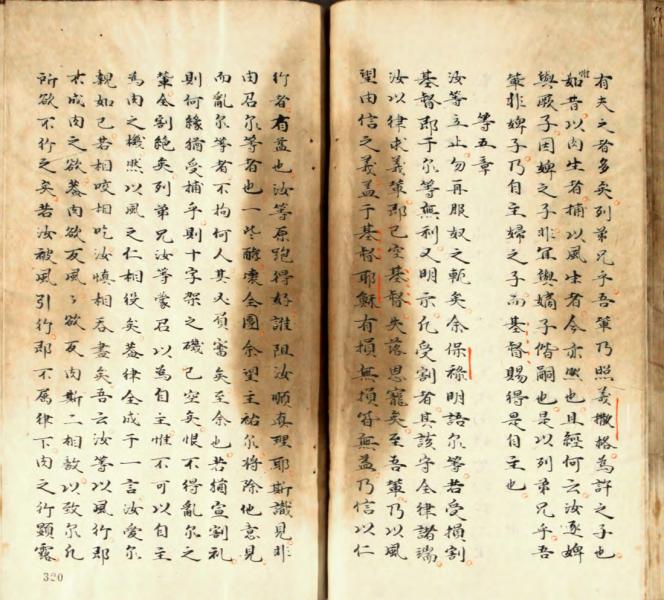 有夫之者多矣列弟兄乎吾輩乃照義撒格為許之子也
惟
如昔以肉生者捕以風生者今亦然也且經何云汝逐婢
與厥子因婢之子非宜與嫡子偕嗣也是以列弟兄乎吾
輩非婢子乃自主婦之子而基督賜得是自主也
第五章
汝等立止勿再服奴之軛矣余保祿明語尔等若受損割
基督即于尔等無利又明示凡受割者其該守全律諸瑞
汝以律求義輩即已空基督失落恩寵矣至吾輩乃以風
望由信之義蓋于基督耶穌有損無損皆無益乃信以仁
行者有益也汝等原跑得好誰阻汝順真理耶斯識見非
由召尔等者也一些酵壞全團余望主祐尔將除他意見
而亂尔等者不拘何人其必負審矣至余也若猶宣割礼
則何緣猶受捕乎則十字架之磯已空矣恨不得亂尔之
輩全割絕矣列弟兄汝等蒙召以為自主惟不可以自主
為肉之機然以風之仁相役矣蓋律全成于一言汝愛尔
親如己若相咬相吃汝慎相吞盡矣吾云汝等以風行即
不成肉之欲蓋肉欲反風風欲反肉斯二相敵以致尔凡
所欲不行之矣若汝被風引行即不属律下肉之行顕露
320